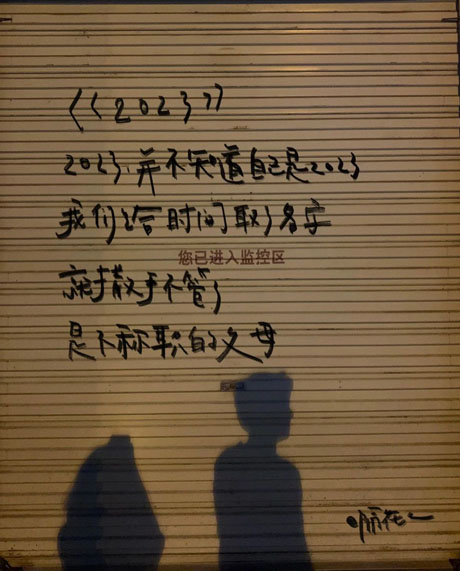 《2023》
2023,并不知道自己是2023
我们给时间取了名字
您已进入监控区
就撒手不管了
是不称职的父母